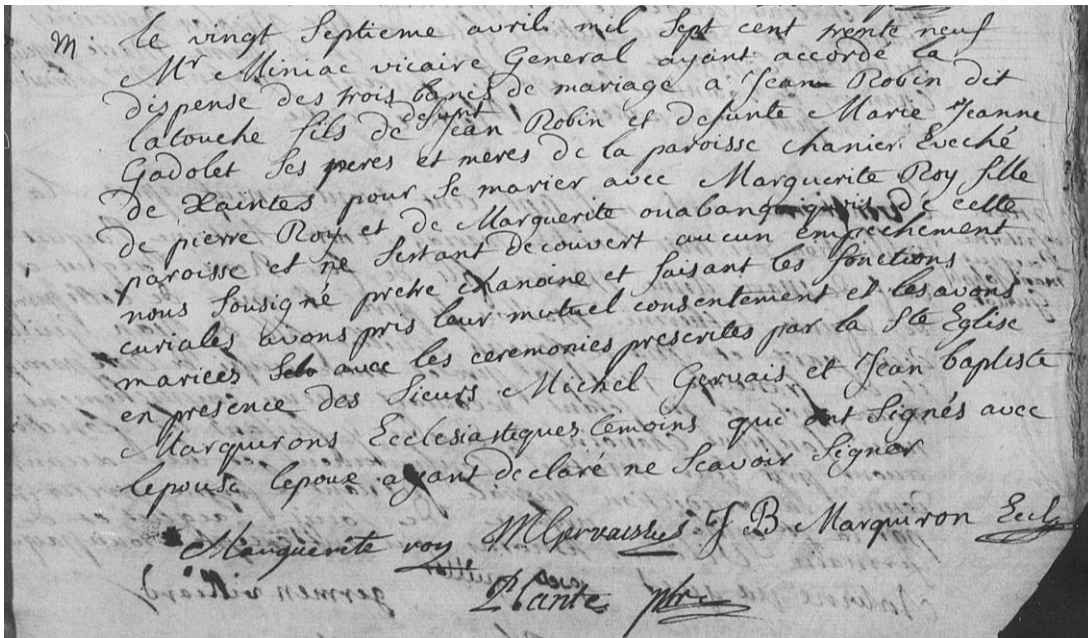 M. le vingt Septieme avril mil Sept cent trente neuf
Mr Miniac vicaire General ayant accordé la
dispense des trois bancs de mariage a Jean Robin dit
latouche fils de defunt Jean Robin et defunte Marie Jeanne
Gadolet Ses peres et meres de la paroisse chanier Eveché
de Xaintes pour Se marier avec Marguerite Roy fille
de pierre Roy et de Marguerite de cette
paroisse et ne Sertant decouvert aucun empechement
nous Sousigné pretre chanoine et faisant les fonctions
curiales avons pris leur mutuel consentement et les avons
mariees avec les ceremonies prescrites par la Ste Eglise
en presence des Sieurs Michel Gervais et Jean baptiste
Marquirons Ecclesiastiques temoins qui ont Signés avec
lepouse lepoux ayant declaré ne Scavoir Signer
Marguerite roy M Gervais J B Marquiron Eccl
Plante ptre